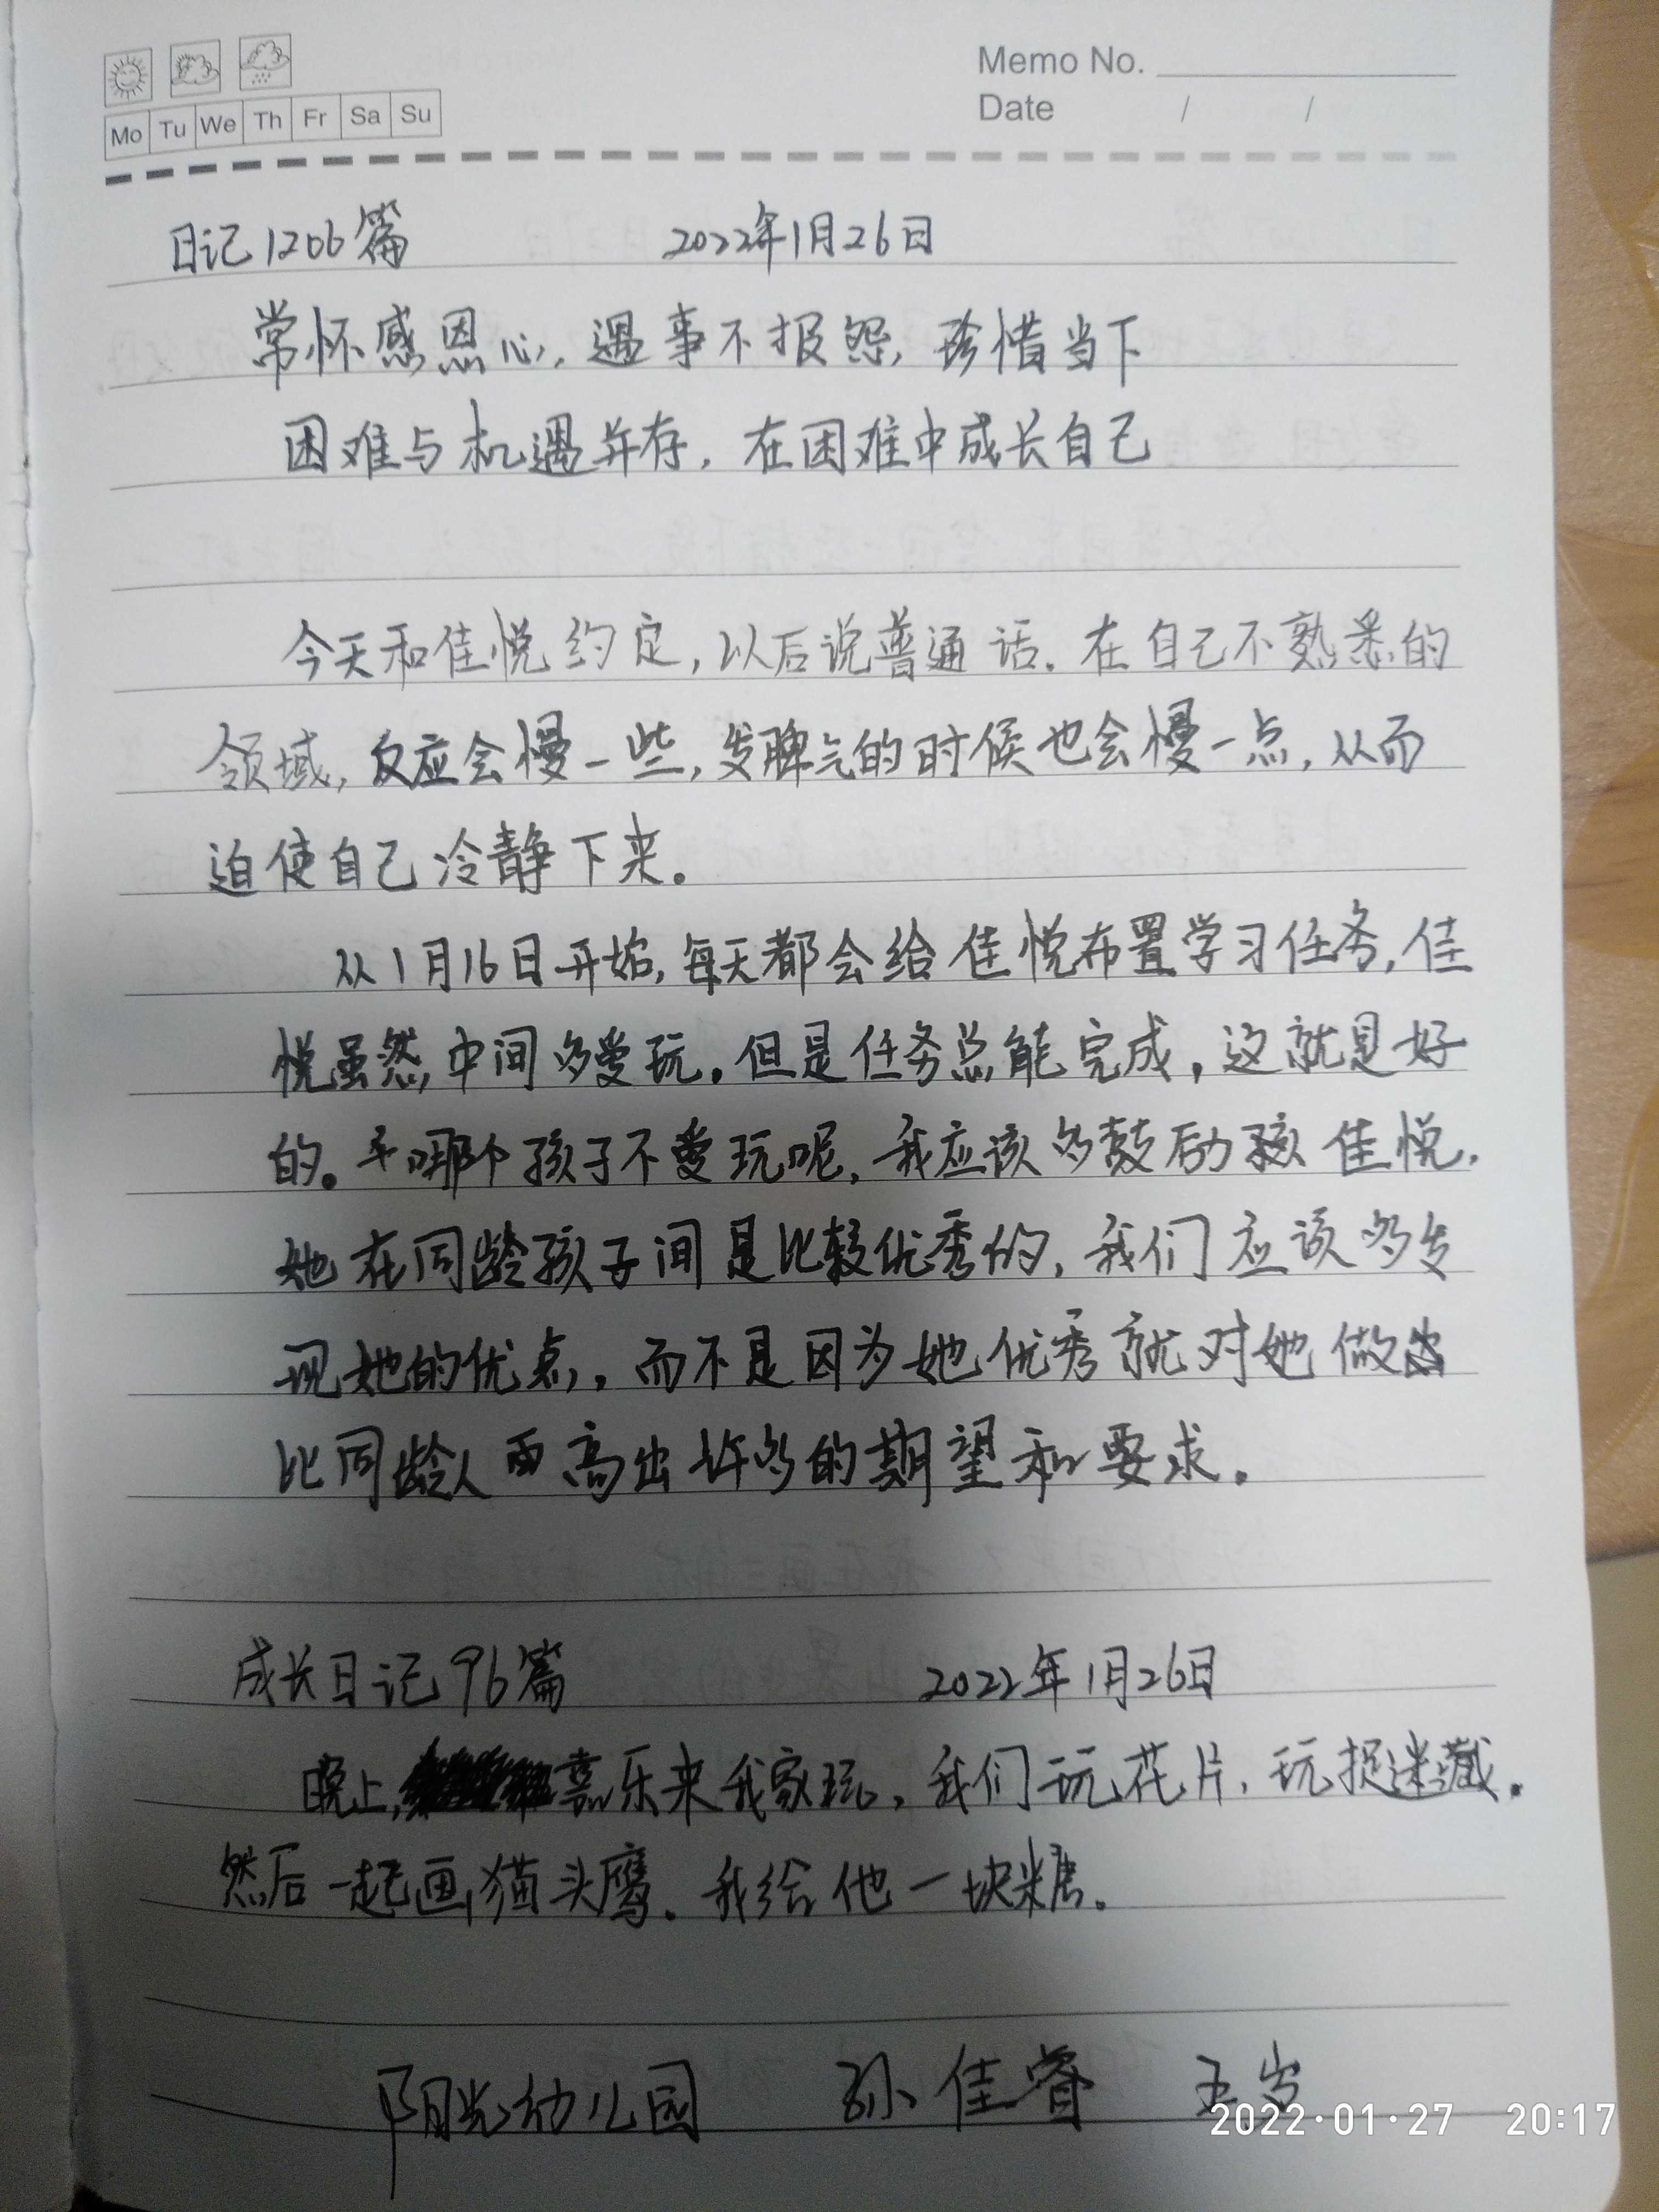 Memo No.
Mo Tu We Th Fr Sa Su
Date / /
日记1206篇 2022年1月26日
常怀感恩心,遇事不报怨,珍惜当下
困难与机遇并存,在困难中成长自己
今天和佳悦约定,以后说普通话.在自己不熟悉的
领域,反应会慢一些,发脾气的时候也会慢一点,从而
迫使自己冷静下来。
从1月16日开始,每天都会给佳悦布置学习任务,佳
悦虽然中间多爱玩.但是任务总能完成,这就是好
的。哪个孩子不爱玩呢,我应该多鼓励孩佳悦.
她在同龄孩子间是比较优秀的,我们应该多发
现她的优点,而不是因为她优秀就对她做出
比同龄人而高出许多的期望和要求.
成长日记96篇 2022年1月26日
晚上,嘉乐来我家玩,我们玩花片,玩捉迷藏.
然后一起画猫头鹰.我给他一块糖.
阳光幼儿园 孙佳睿 五岁
2022·01·27 20:17